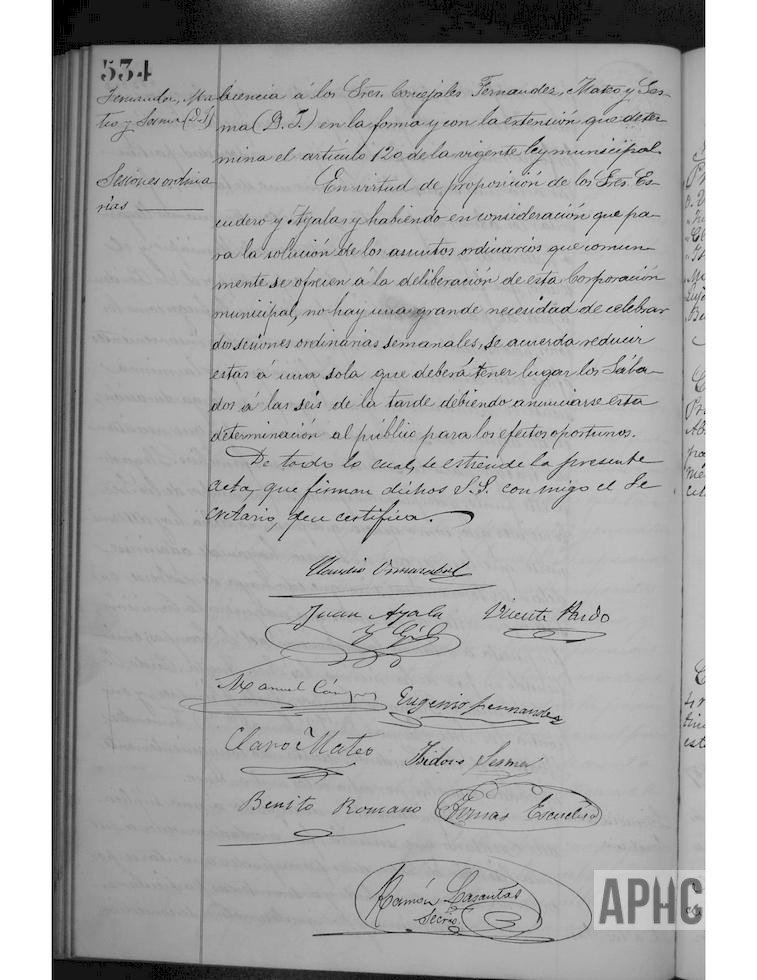 534
Fernandez, Ma-
teo y Sesma (D.I)
Sesiones ordina-
rias
licencia á los Sres. Concejales Fernandez, Mateo y Ses-
ma (D. I.) en la forma y con la extensión que deter-
mina el artículo 120 de la vigente ley municipal.
En virtud de proposición de los Sres. Es-
cudero y Ayala, y habiendo en consideración que pa-
ra la solución de los asuntos ordinarios que comun-
mente se ofrecen á la deliberación de esta Corporación
municipal, no hay una grande necesidad de celebrar
dos sesiones ordinarias semanales, se acuerda reducir
estas á una sola que deberá tener lugar los Sába-
dos á las seis de la tarde debiendo anunciarse esta
determinación al público para los efectos oportunos.
De todo lo cual, se estiende la presente
acta, que firman dichos S.S. con migo el Se-
cretario, que certifica.
Claudio
Juan Ayala Vicente Pardo
y Gil
Manuel Eugenio Fernandez
Claro Mateo Isidoro Sesma
Benito Romano Tomas Escudero
Ramón Lasantas
Secrio.
APHC